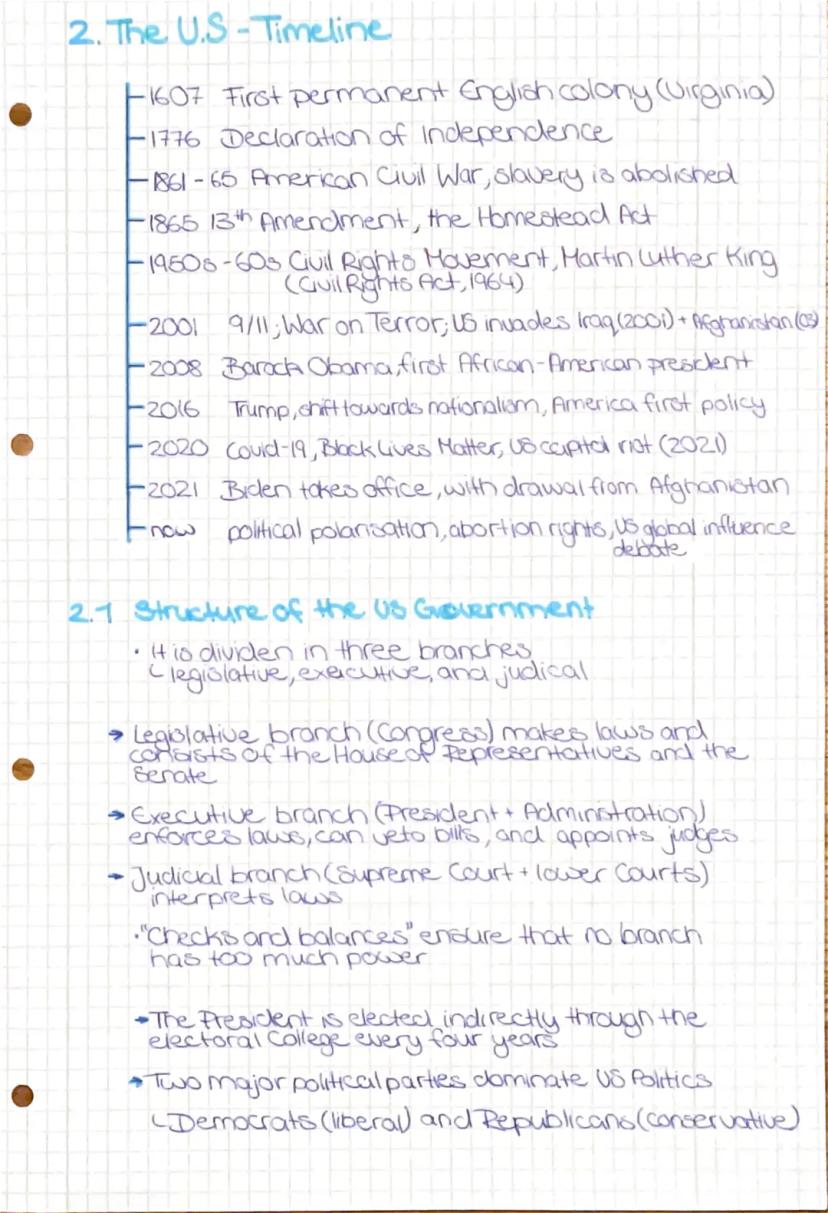 2. The U.S - Timeline
1607 First permanent English colony (Virginia)
1776 Declaration of Independence
1861-65 American Civil War, slavery is abolished
1865 13th Amendment, the Homestead Act
1950s-60s Civil Rights Movement, Martin Luther King
(Civil Rights Act, 1964)
2001 9/11; War on Terror; US invades Iraq (2001) + Afghanistan (03)
2008 Barack Obama, first African-American president
2016 Trump, shift towards nationalism, America first policy
2020 Covid-19, Black Lives Matter, US capitol riot (2021)
2021 Biden takes office, with drawal from Afghanistan
now political polarisation, abortion rights, US global influence
debate
2.1 Structure of the US Government
• It is dividen in three branches
↳ legislative, executive, and judical
→ Legislative branch (Congress) makes laws and
consists of the House of Representatives and the
Senate
→ Executive branch (President + Administration)
enforces laws, can veto bills, and appoints judges
→ Judicial branch (Supreme Court + lower Courts)
interprets laws
• "Checks and balances" ensure that no branch
has too much power
→ The President is elected indirectly through the
electoral College every four years
→ Two major political parties dominate US Politics
↳ Democrats (liberal) and Republicans (conservative)